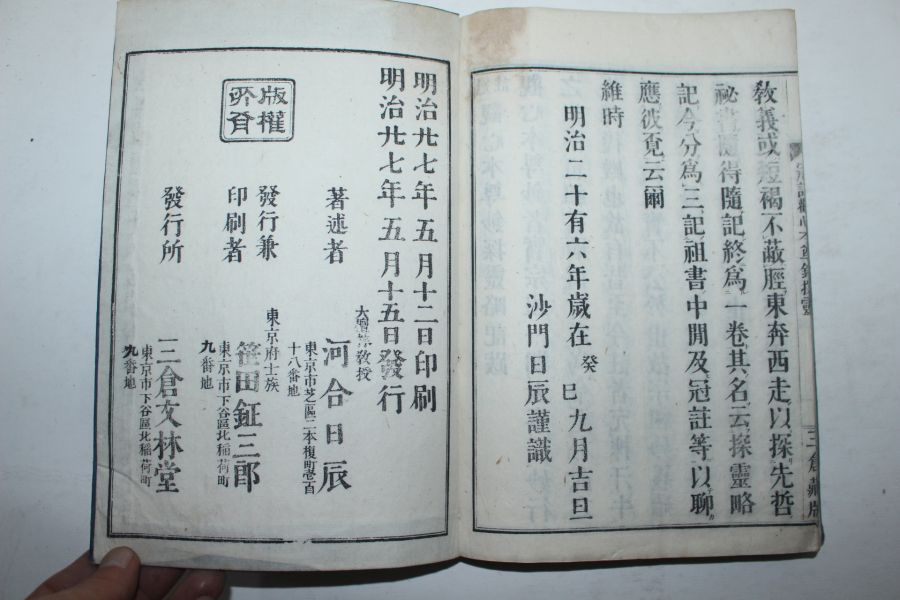 教義或短褐不蔽脛東奔西走以探先哲
祕書隨得隨記終爲一卷其名云探靈略
記今分爲三記祖書中閒及冠註等以聊
應彼覔云爾
維時
明治二十有六年歲在癸巳九月吉旦
沙門日辰謹識
三倉藏版
明治廿七年五月十二日印刷
明治廿七年五月十五日發行
著述者
大學林敎授
河合日辰
東京市芝區二本榎町壱百
十八番地
發行兼
印刷者
東京府士族
笹田鉦三郎
東京市下谷區北稲荷町
九番地
發行所
三倉文林堂
東京市下谷區北稲荷町
九番地
版權
所有